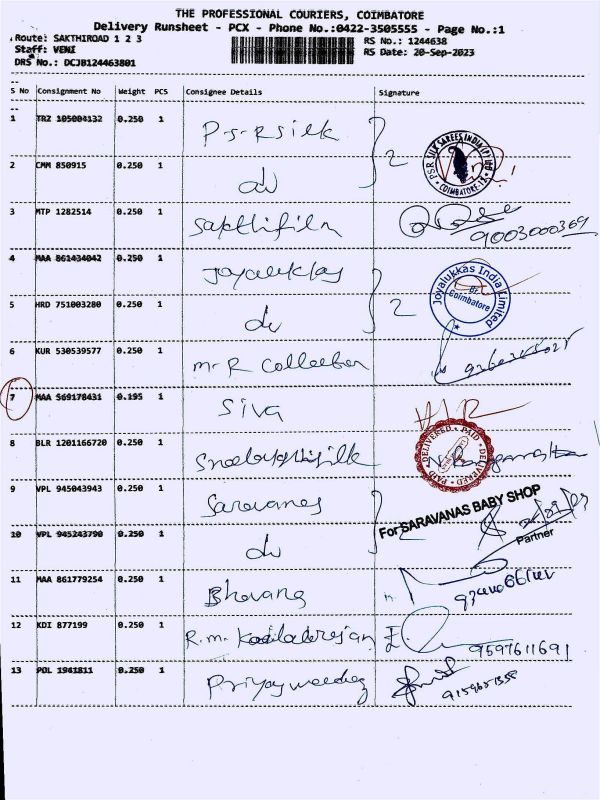 THE PROFESSIONAL COURIERS, COIMBATORE
Delivery Runsheet - PCX - Phone No.:0422-3505555 - Page No.:1
Route: SAKTHIROAD 1 2 3 RS No.: 1244638
Staff: VENI RS Date: 20-Sep-2023
DRS No.: DCJB124463801
S No Consignment No Weight PCS Consignee Details Signature
1 TRZ 105004132 0.250 1 P-S-R silk
PSR SILK SAREES INDIA (P)
COIMBATORE
2 CMM 850915 0.250 1 do 2
3 MTP 1282514 0.250 1 9003000369
4 MAA 861434042 0.250 1
Joyalukkas India Limited
Coimbatore
5 HRD 751003280 0.250 1 do 2
6 KUR 530539577 0.250 1 Mr R
7 MAA 569178431 0.195 1 Siva
8 BLR 1201166720 0.250 1
DELIVERED PAID DELIVERED PAID
9 VPL 945043943 0.250 1 Saravanas
For SARAVANAS BABY SHOP
Partner
10 VPL 945243790 0.250 1 do
11 MAA 861779254 0.250 1 Bhavana
12 KDI 877199 0.250 1 R.m. 9597611691
13 POL 1941811 0.250 1